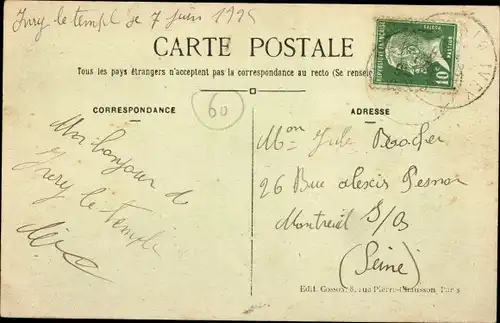 Ivry le templ le 7 juin 1925
CARTE POSTALE
Tous les pays étrangers n'acceptent pas la correspondance au recto (Se rensei
REPUBLIQUE FRANÇAISE
POSTES
10c
CORRESPONDANCE
60
ADRESSE
Mon bonjour d
Ivry le Temple
Mon Jule
26 Rue alexis Pesnon
Montreuil S/B
(Seine)
Edit. Gosson, 8, rue Pierre-Chausson, Paris